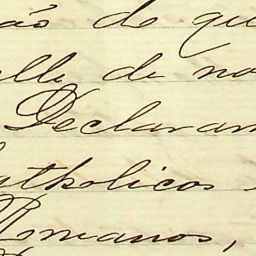 ás de que
elle de no
Declaram
Catholicos
Romanos,